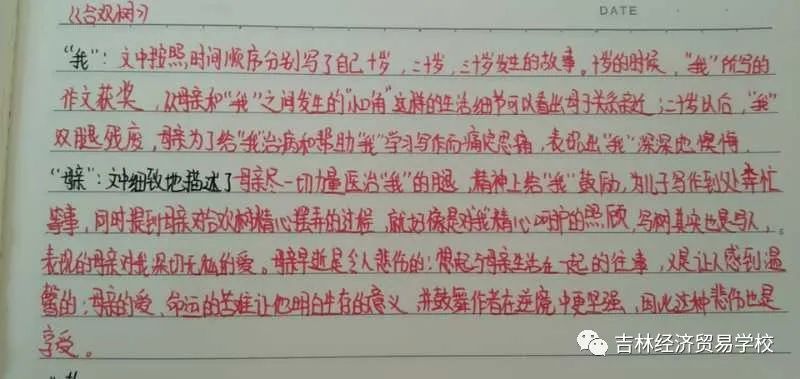 《合欢树》
DATE
“我”：文中按照时间顺序分别写了自己十岁，二十岁，三十岁发生的故事。十岁的时候，“我”所写的
作文获奖，从母亲和“我”之间发生的“小口角”这样的生活细节可以看出母子关系亲近；二十岁以后，“我”
双腿残废，母亲为了给“我”治病和帮助“我”学习写作而痛定思痛，表现出“我”深深地懊悔。
“母亲”：文中细致地描述了母亲尽一切力量医治“我”的腿，精神上给“我”鼓励，为儿子写作到处奔忙
等事，同时提到母亲对合欢树精心摆弄的过程，就好像是对我精心呵护的照顾，写树其实也是写人，
表现的母亲对我深切无私的爱。母亲早逝是令人悲伤的；想起与母亲生活在一起的往事，又是让人感到温
馨的；母亲的爱、命运的苦难让他明白生存的意义，并鼓舞作者在逆境中更坚强，因此这种悲伤也是
享受。
吉林经济贸易学校